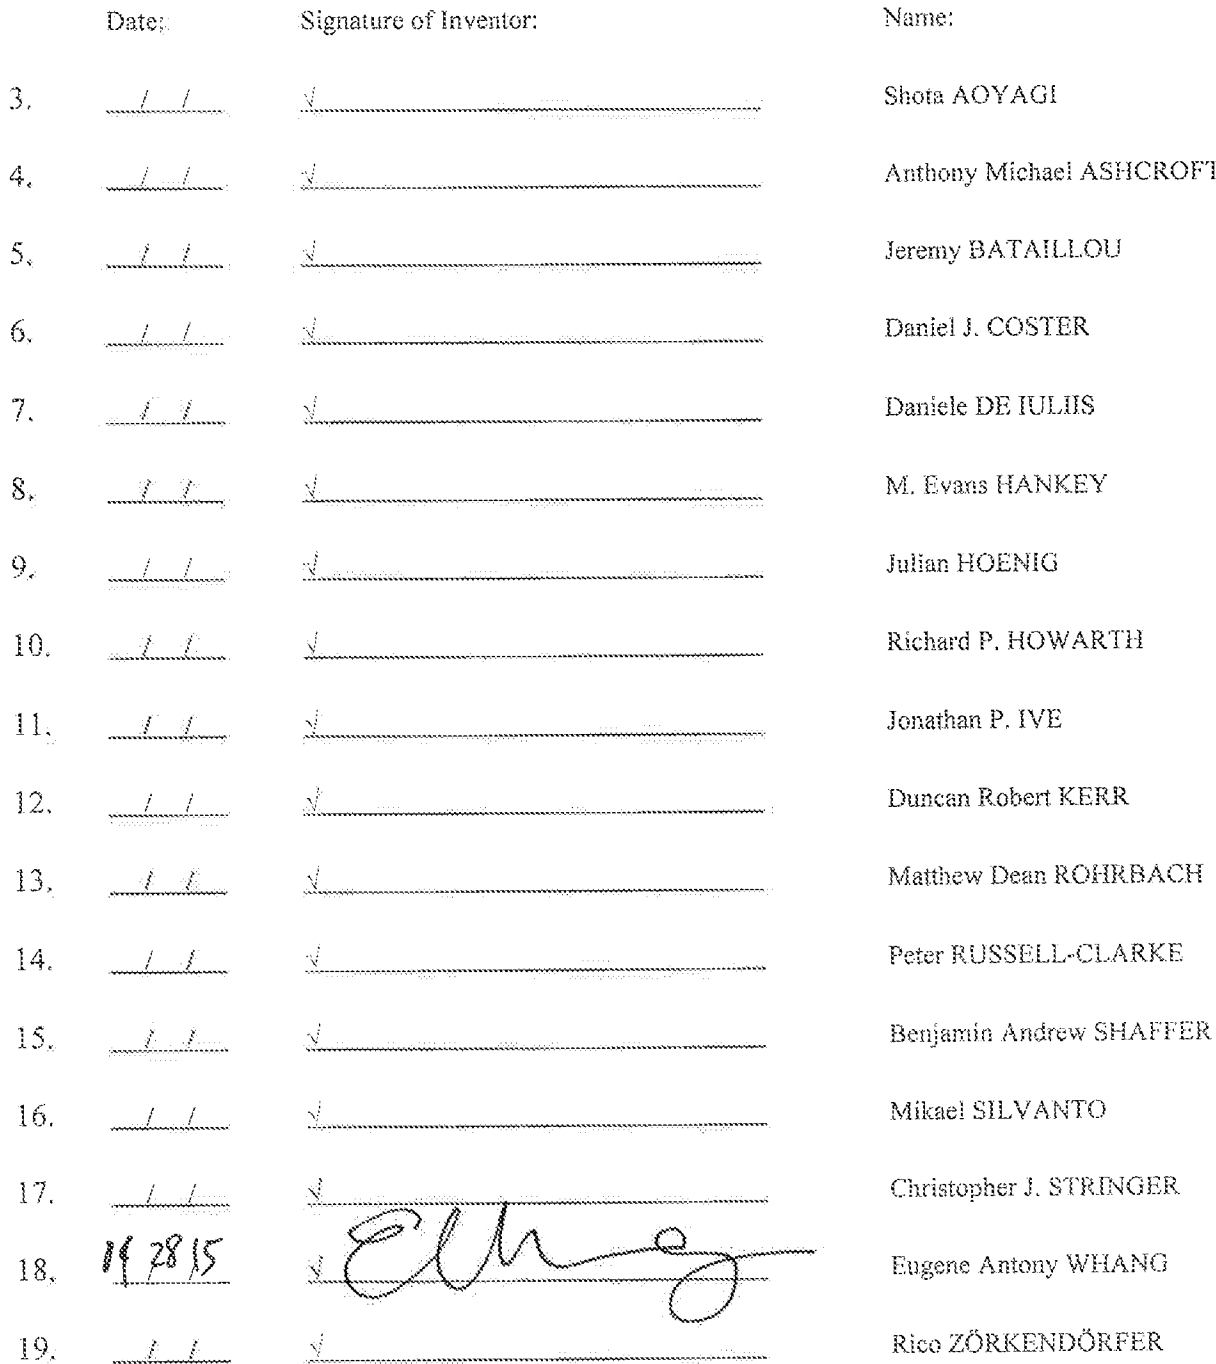 Date: Signature of Inventor: Name:
3. / / √ Shota AOYAGI
4. / / √ Anthony Michael ASHCROFT
5. / / √ Jeremy BATAILLOU
6. / / √ Daniel J. COSTER
7. / / √ Daniele DE IULIIS
8. / / √ M. Evans HANKEY
9. / / √ Julian HOENIG
10. / / √ Richard P. HOWARTH
11. / / √ Jonathan P. IVE
12. / / √ Duncan Robert KERR
13. / / √ Matthew Dean ROHRBACH
14. / / √ Peter RUSSELL-CLARKE
15. / / √ Benjamin Andrew SHAFFER
16. / / √ Mikael SILVANTO
17. / / √ Christopher J. STRINGER
18. / 28 / 15 √ Eugene Antony WHANG
19. / / √ Rico ZÖRKENDÖRFER